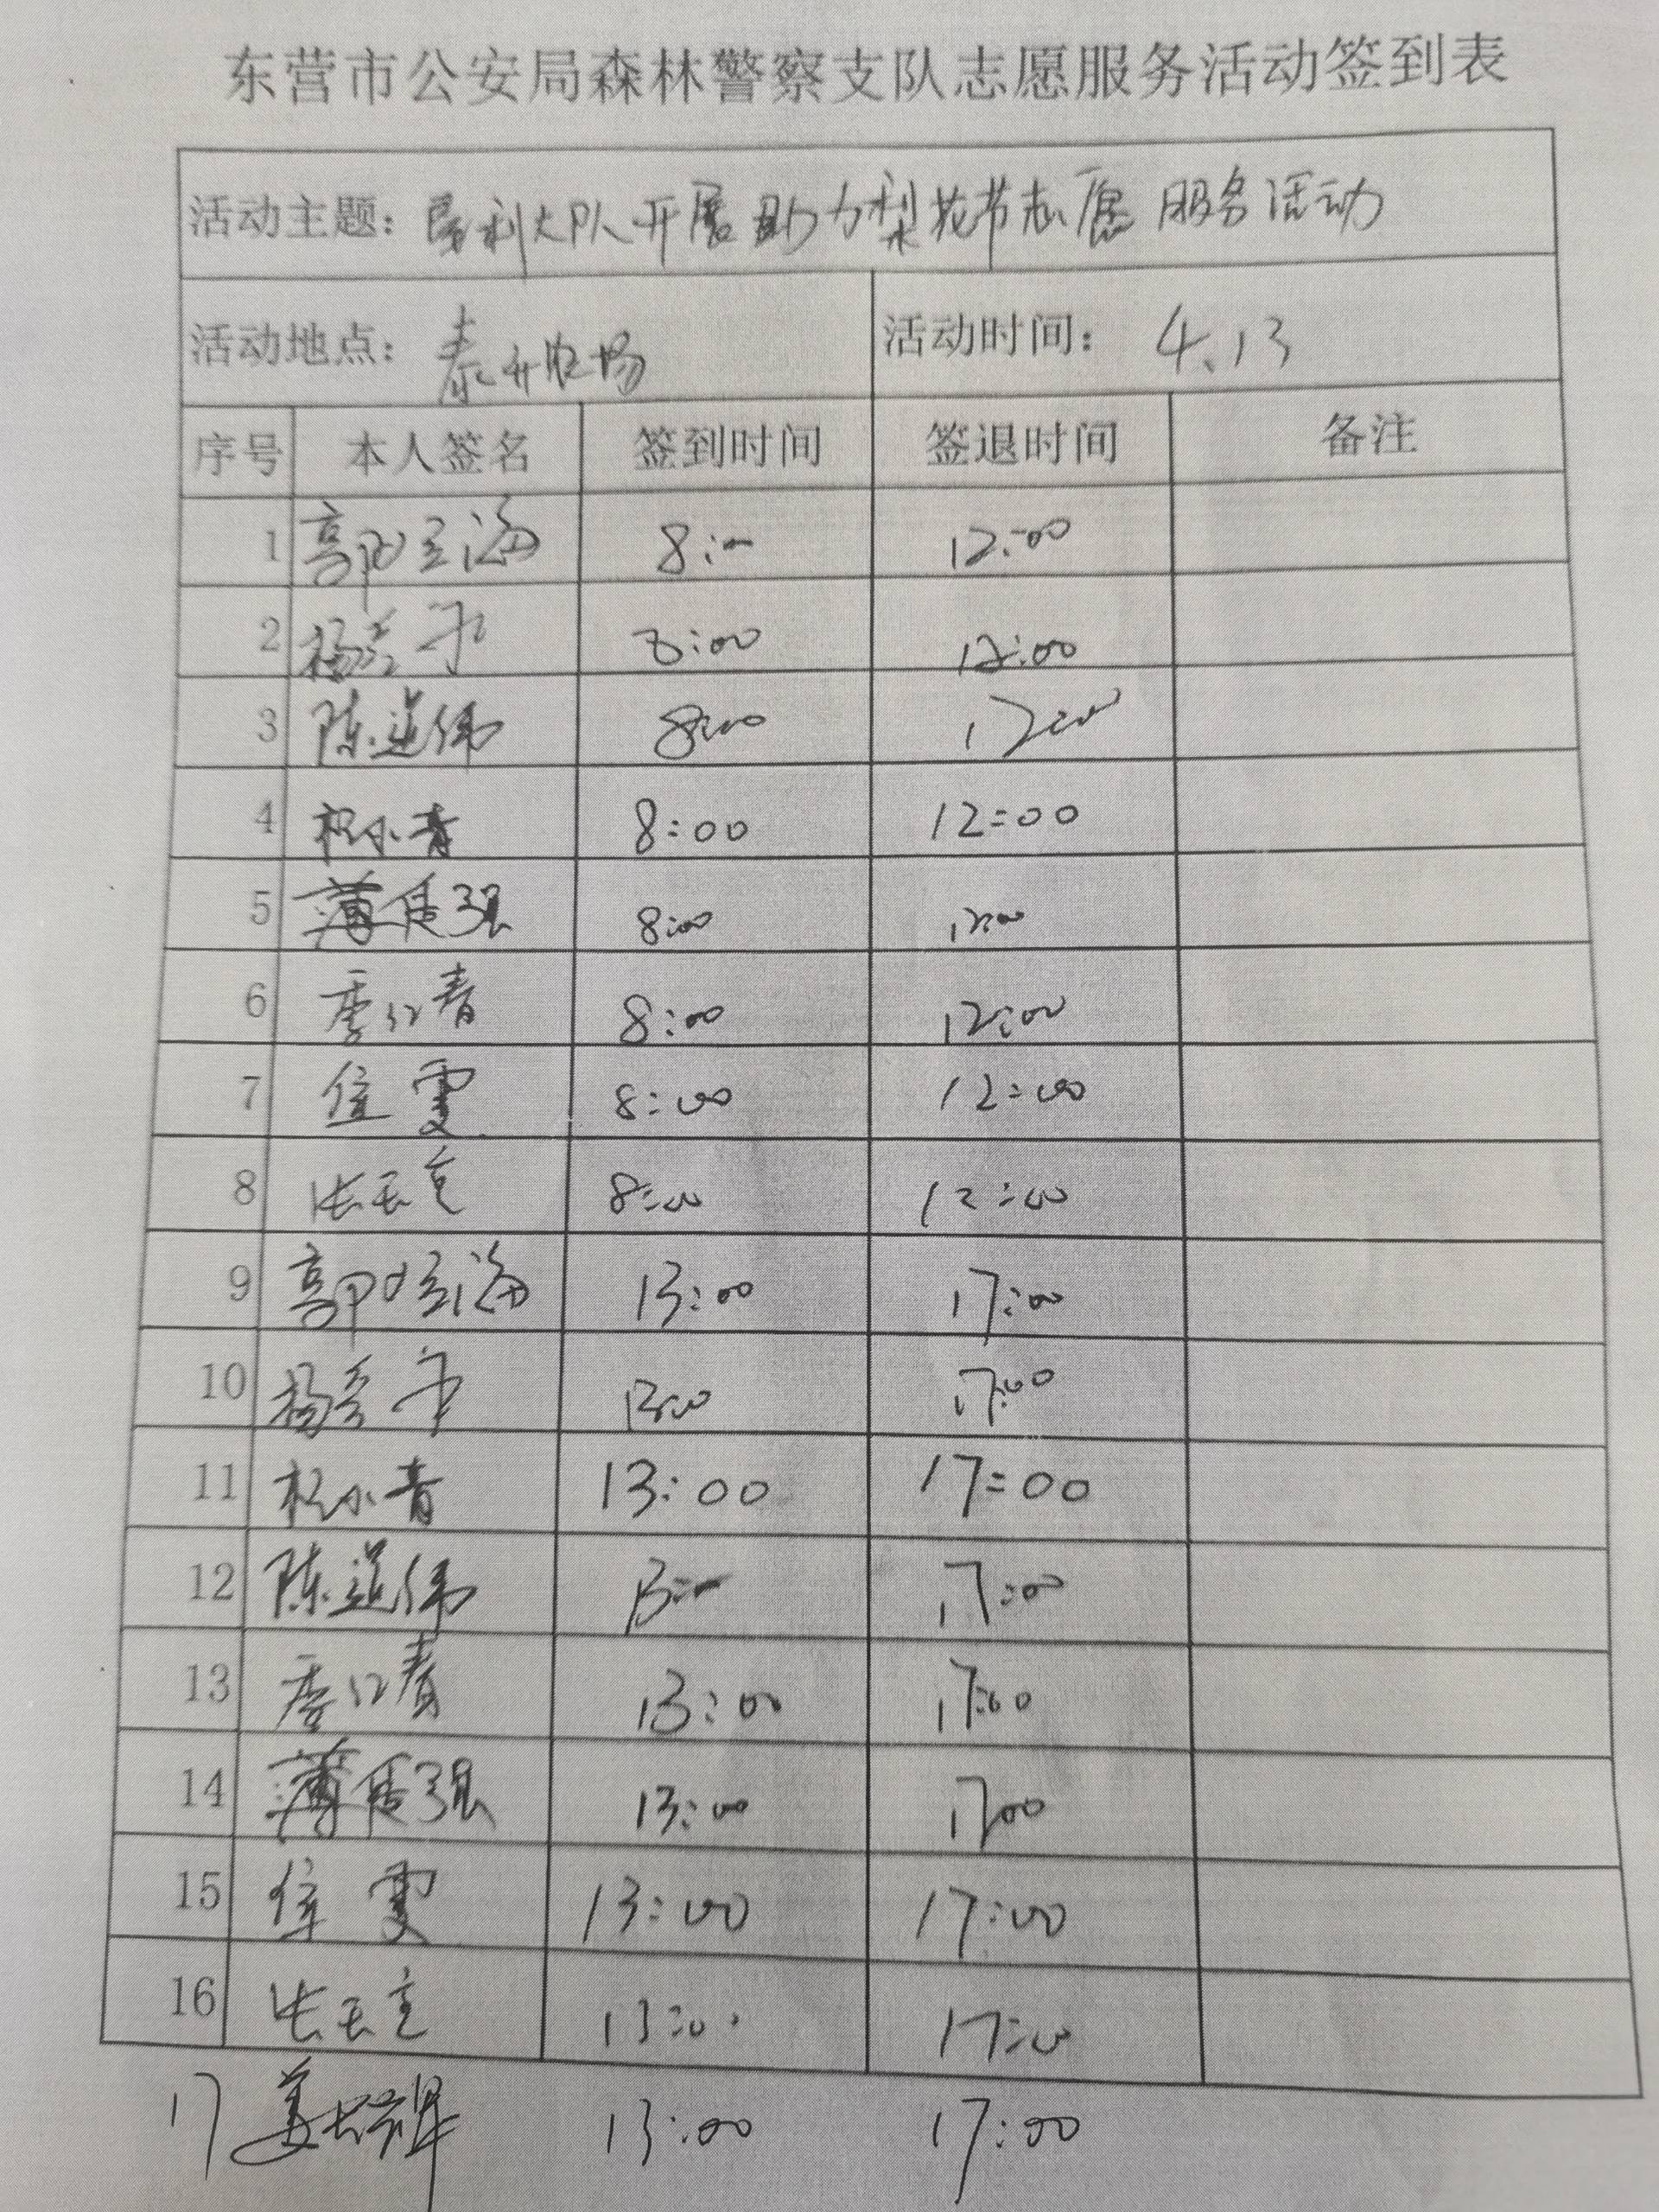 东营市公安局森林警察支队志愿服务活动签到表
活动主题：垦利大队开展助力梨花节志愿服务活动
活动地点：泰开农场 活动时间：4.13
序号 本人签名 签到时间 签退时间 备注
1 8:00 12:00
2 8:00 12:00
3 陈道伟 8:00 12:00
4 杨小青 8:00 12:00
5 强 8:00 12:00
6 季 青 8:00 12:00
7 雯 8:00 12:00
8 张 8:00 12:00
9 13:00 17:00
10 13:00 17:00
11 杨小青 13:00 17:00
12 陈道伟 13:00 17:00
13 季 青 13:00 17:00
14 强 13:00 1700
15 雯 13:00 17:00
16 张 13:00 17:00
17 姜 13:00 17:00